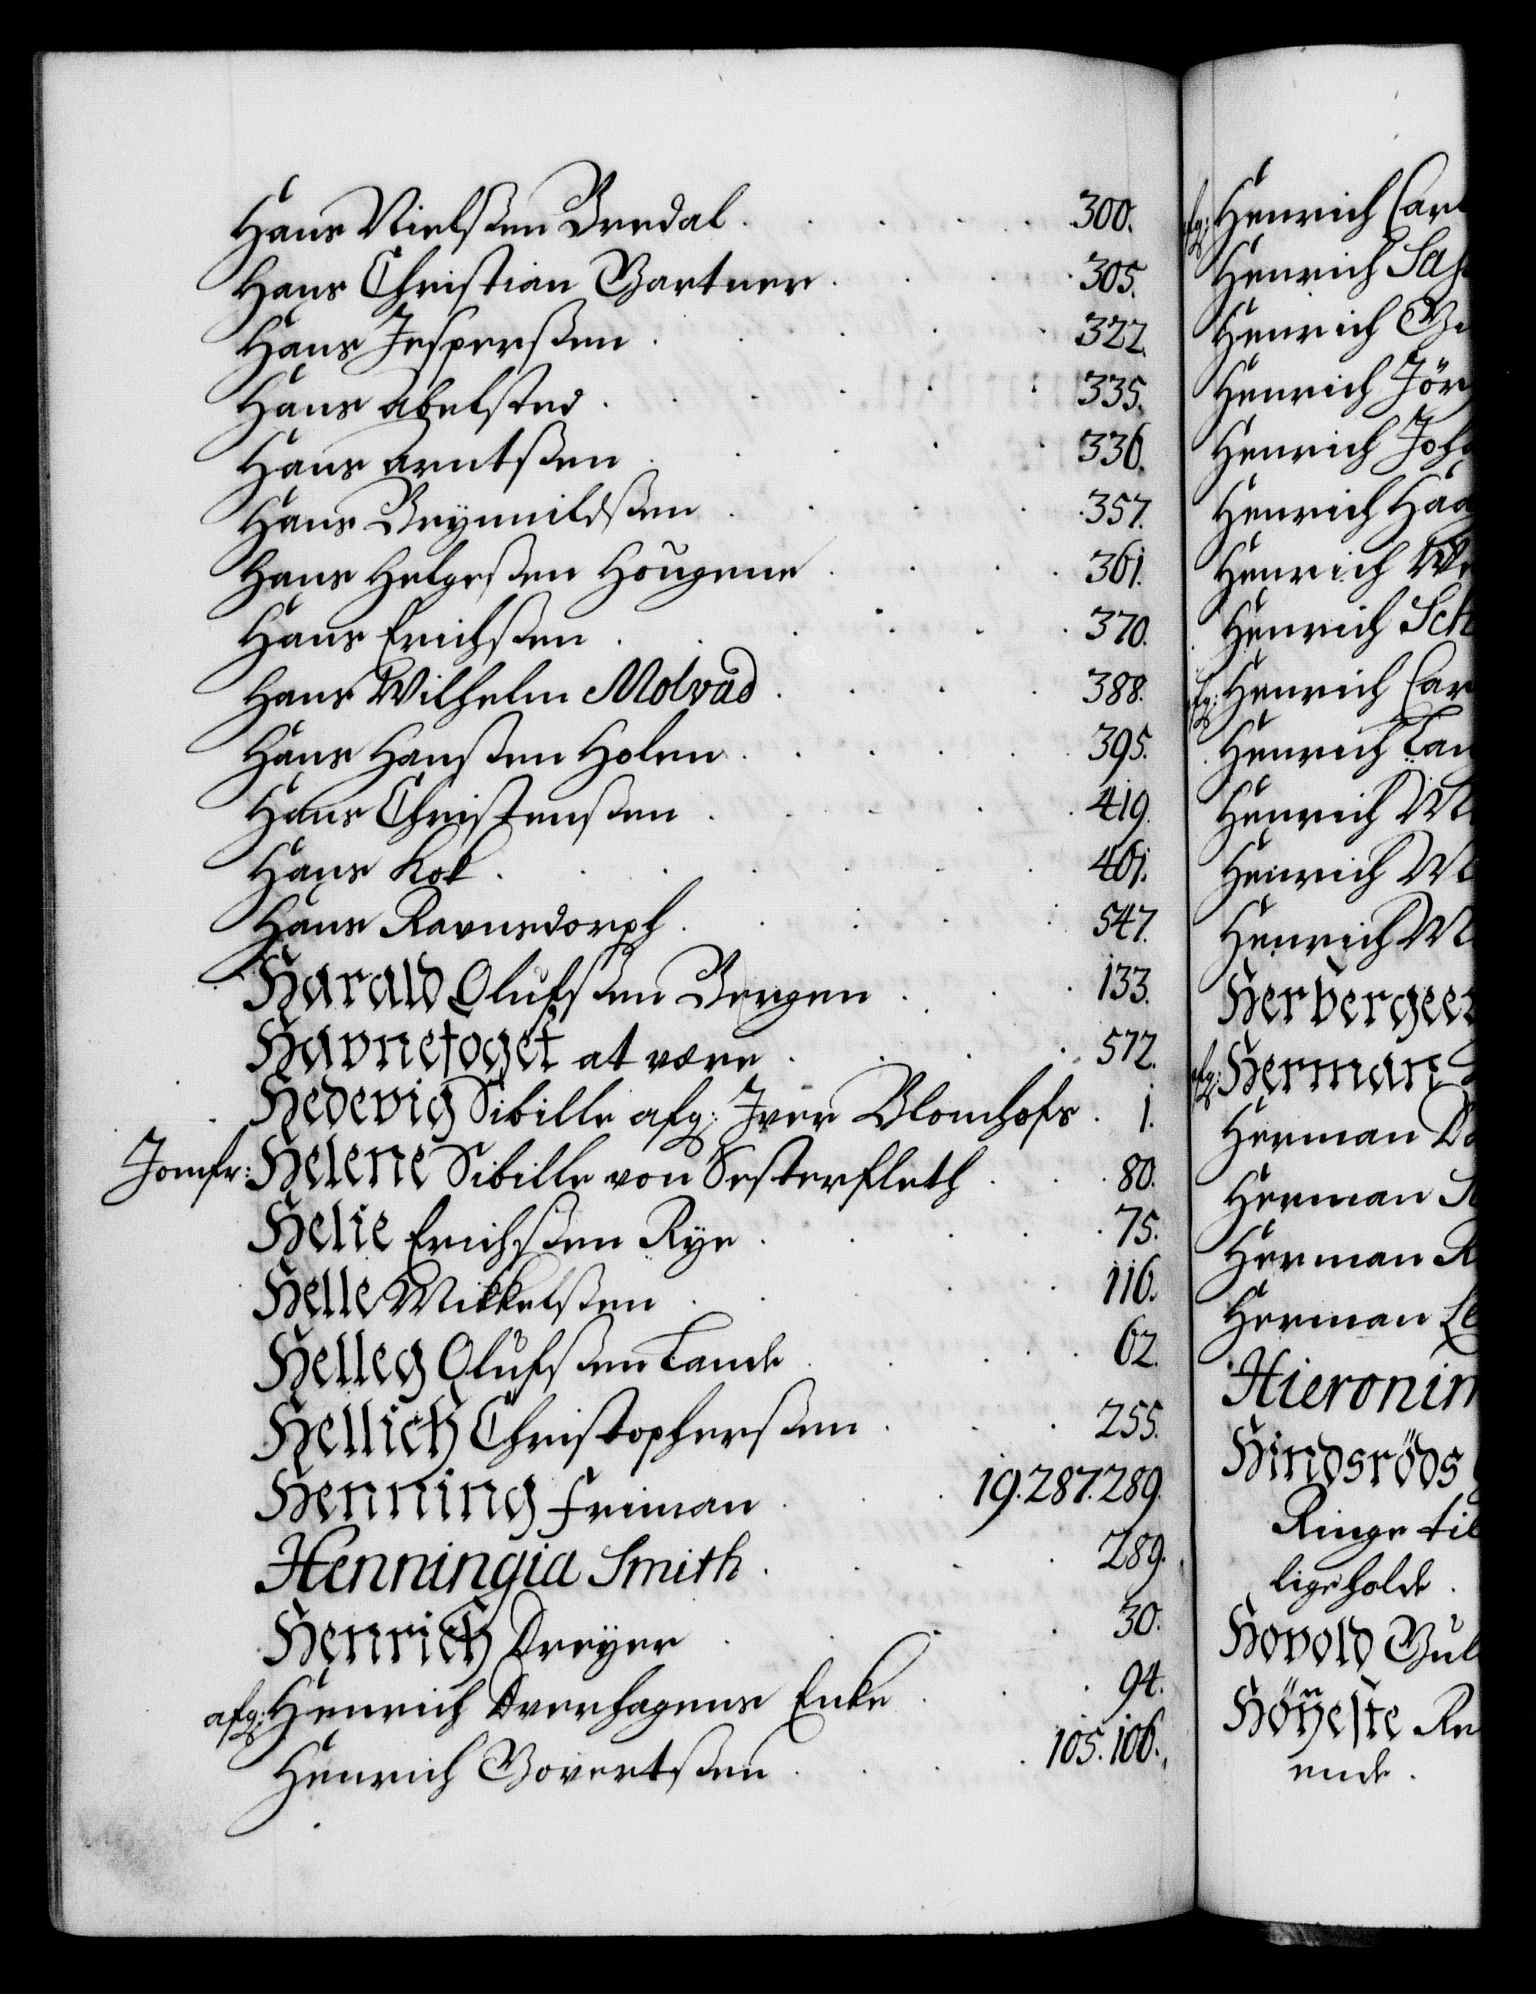 Hans Nielsßen Bredal . 300.
Hans Christian Gartner . 305.
Hans Jesperßen . 322.
Hans Abelsted . 335.
Hans Arntsßen . 336.
Hans Brynnildsßen . 357.
Hans Helgesßen Hougene . 361.
Hans Erichsßen . 370.
Hans Wilhelm Molvad . 388.
Hans Hansßen Holen . 395.
Hans Christensßen . 419.
Hans Kok . 461.
Hans Ravnsdorph . 547.
Harald Olufsßen Bergen . 133.
Havnefoget at være . 572.
Hedevig Sibille afg: Iver Blomhofs . 1.
Jomfr: Helene Sibille von Sesterfleth . 80.
Helie Erichsßen Rye . 75.
Helle Mikkelsßen . 116.
Helleg Olufsßen Lande . 62.
Hellich Christophersßen . 255.
Henning Friman . 19. 287. 289.
Henningia Smith . 289.
Henrich Dreyer . 30.
afg: Henrich Overhagens Enke . 94.
Henrich Govertsßen . 105. 106.
afg: Henrich Car
Henrich
Henrich
Henrich Jör
Henrich Joh
Henrich Haa
Henrich We
Henrich Sch
afg: Henrich Car
Henrich Lan
Henrich M
Henrich
Henrich
Herberge
afg: Herman
Herman
Herman
Herman R
Herman Le
Hieronim
Hindsröds
Ringe til
ligeholde .
Hovold Gul
Höÿeste Re
ende .